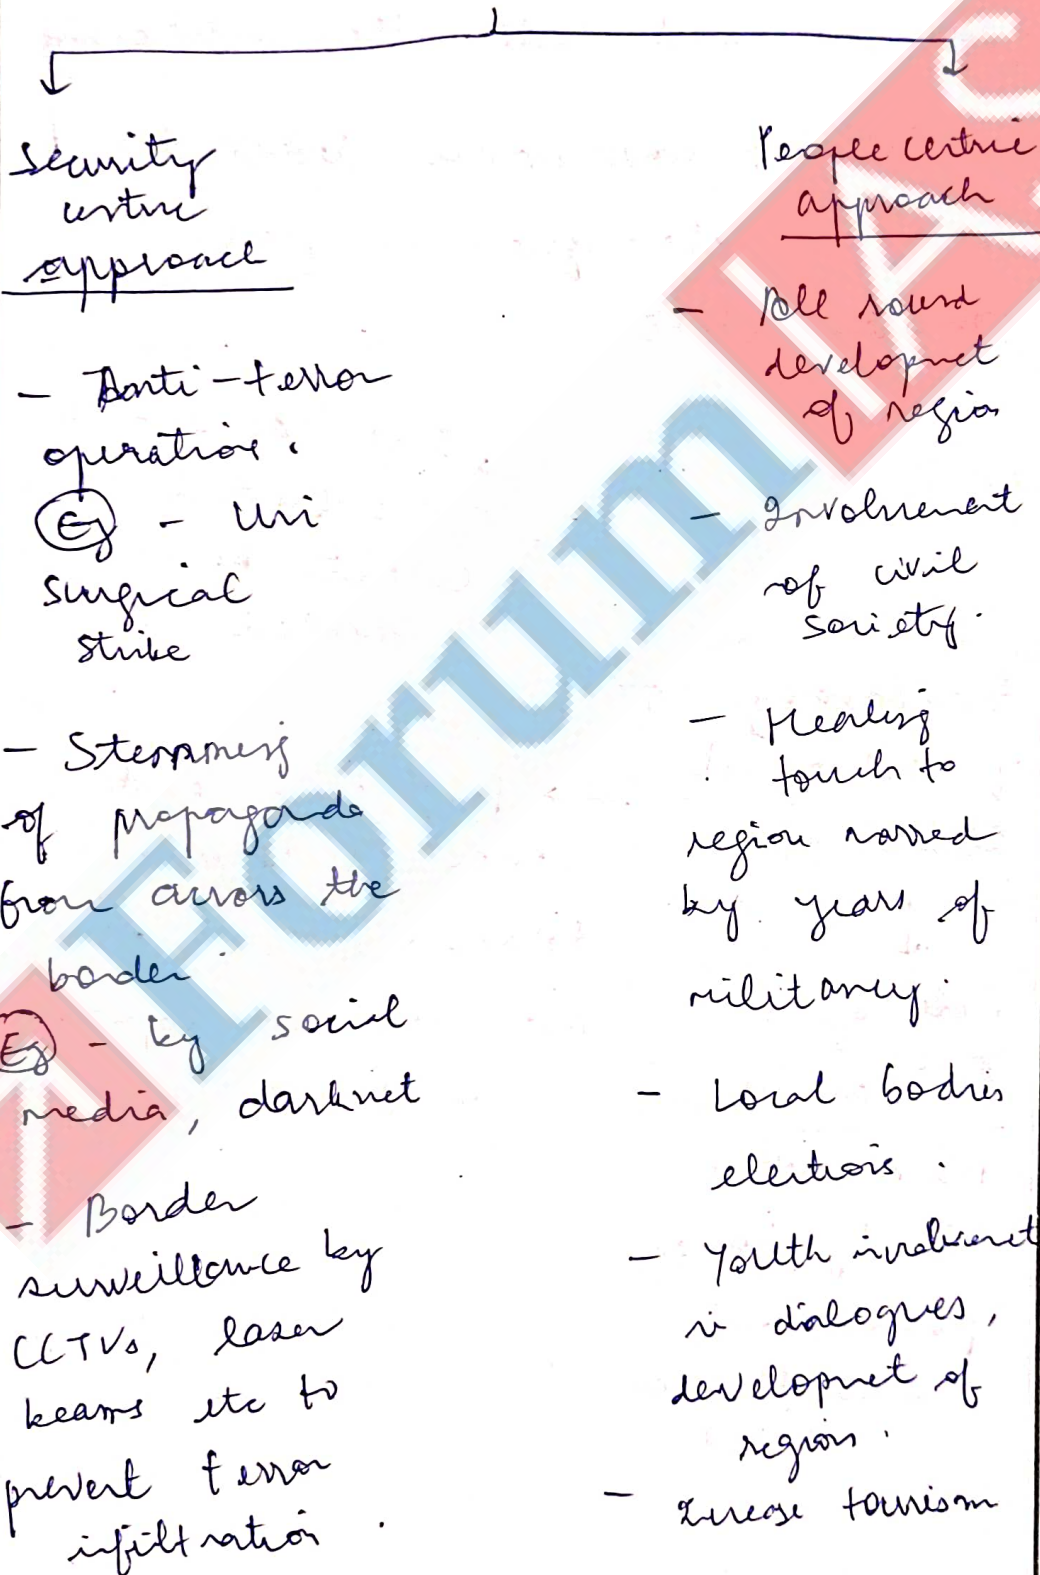 Security
centric
approach
- Anti-terror
operations.
Eg - Uri
surgical
strike
- Stemming
of propaganda
from across the
border.
Eg - by social
media, darknet
- Border
surveillance by
CCTVs, laser
beams etc to
prevent terror
infiltration.
People centric
approach
- All round
development
of region
- Involvement
of civil
society.
- Healing
touch to
region marred
by years of
militancy.
- Local bodies
elections.
- Youth involvement
in dialogues,
development of
region.
- Increase tourism
Forum IAS